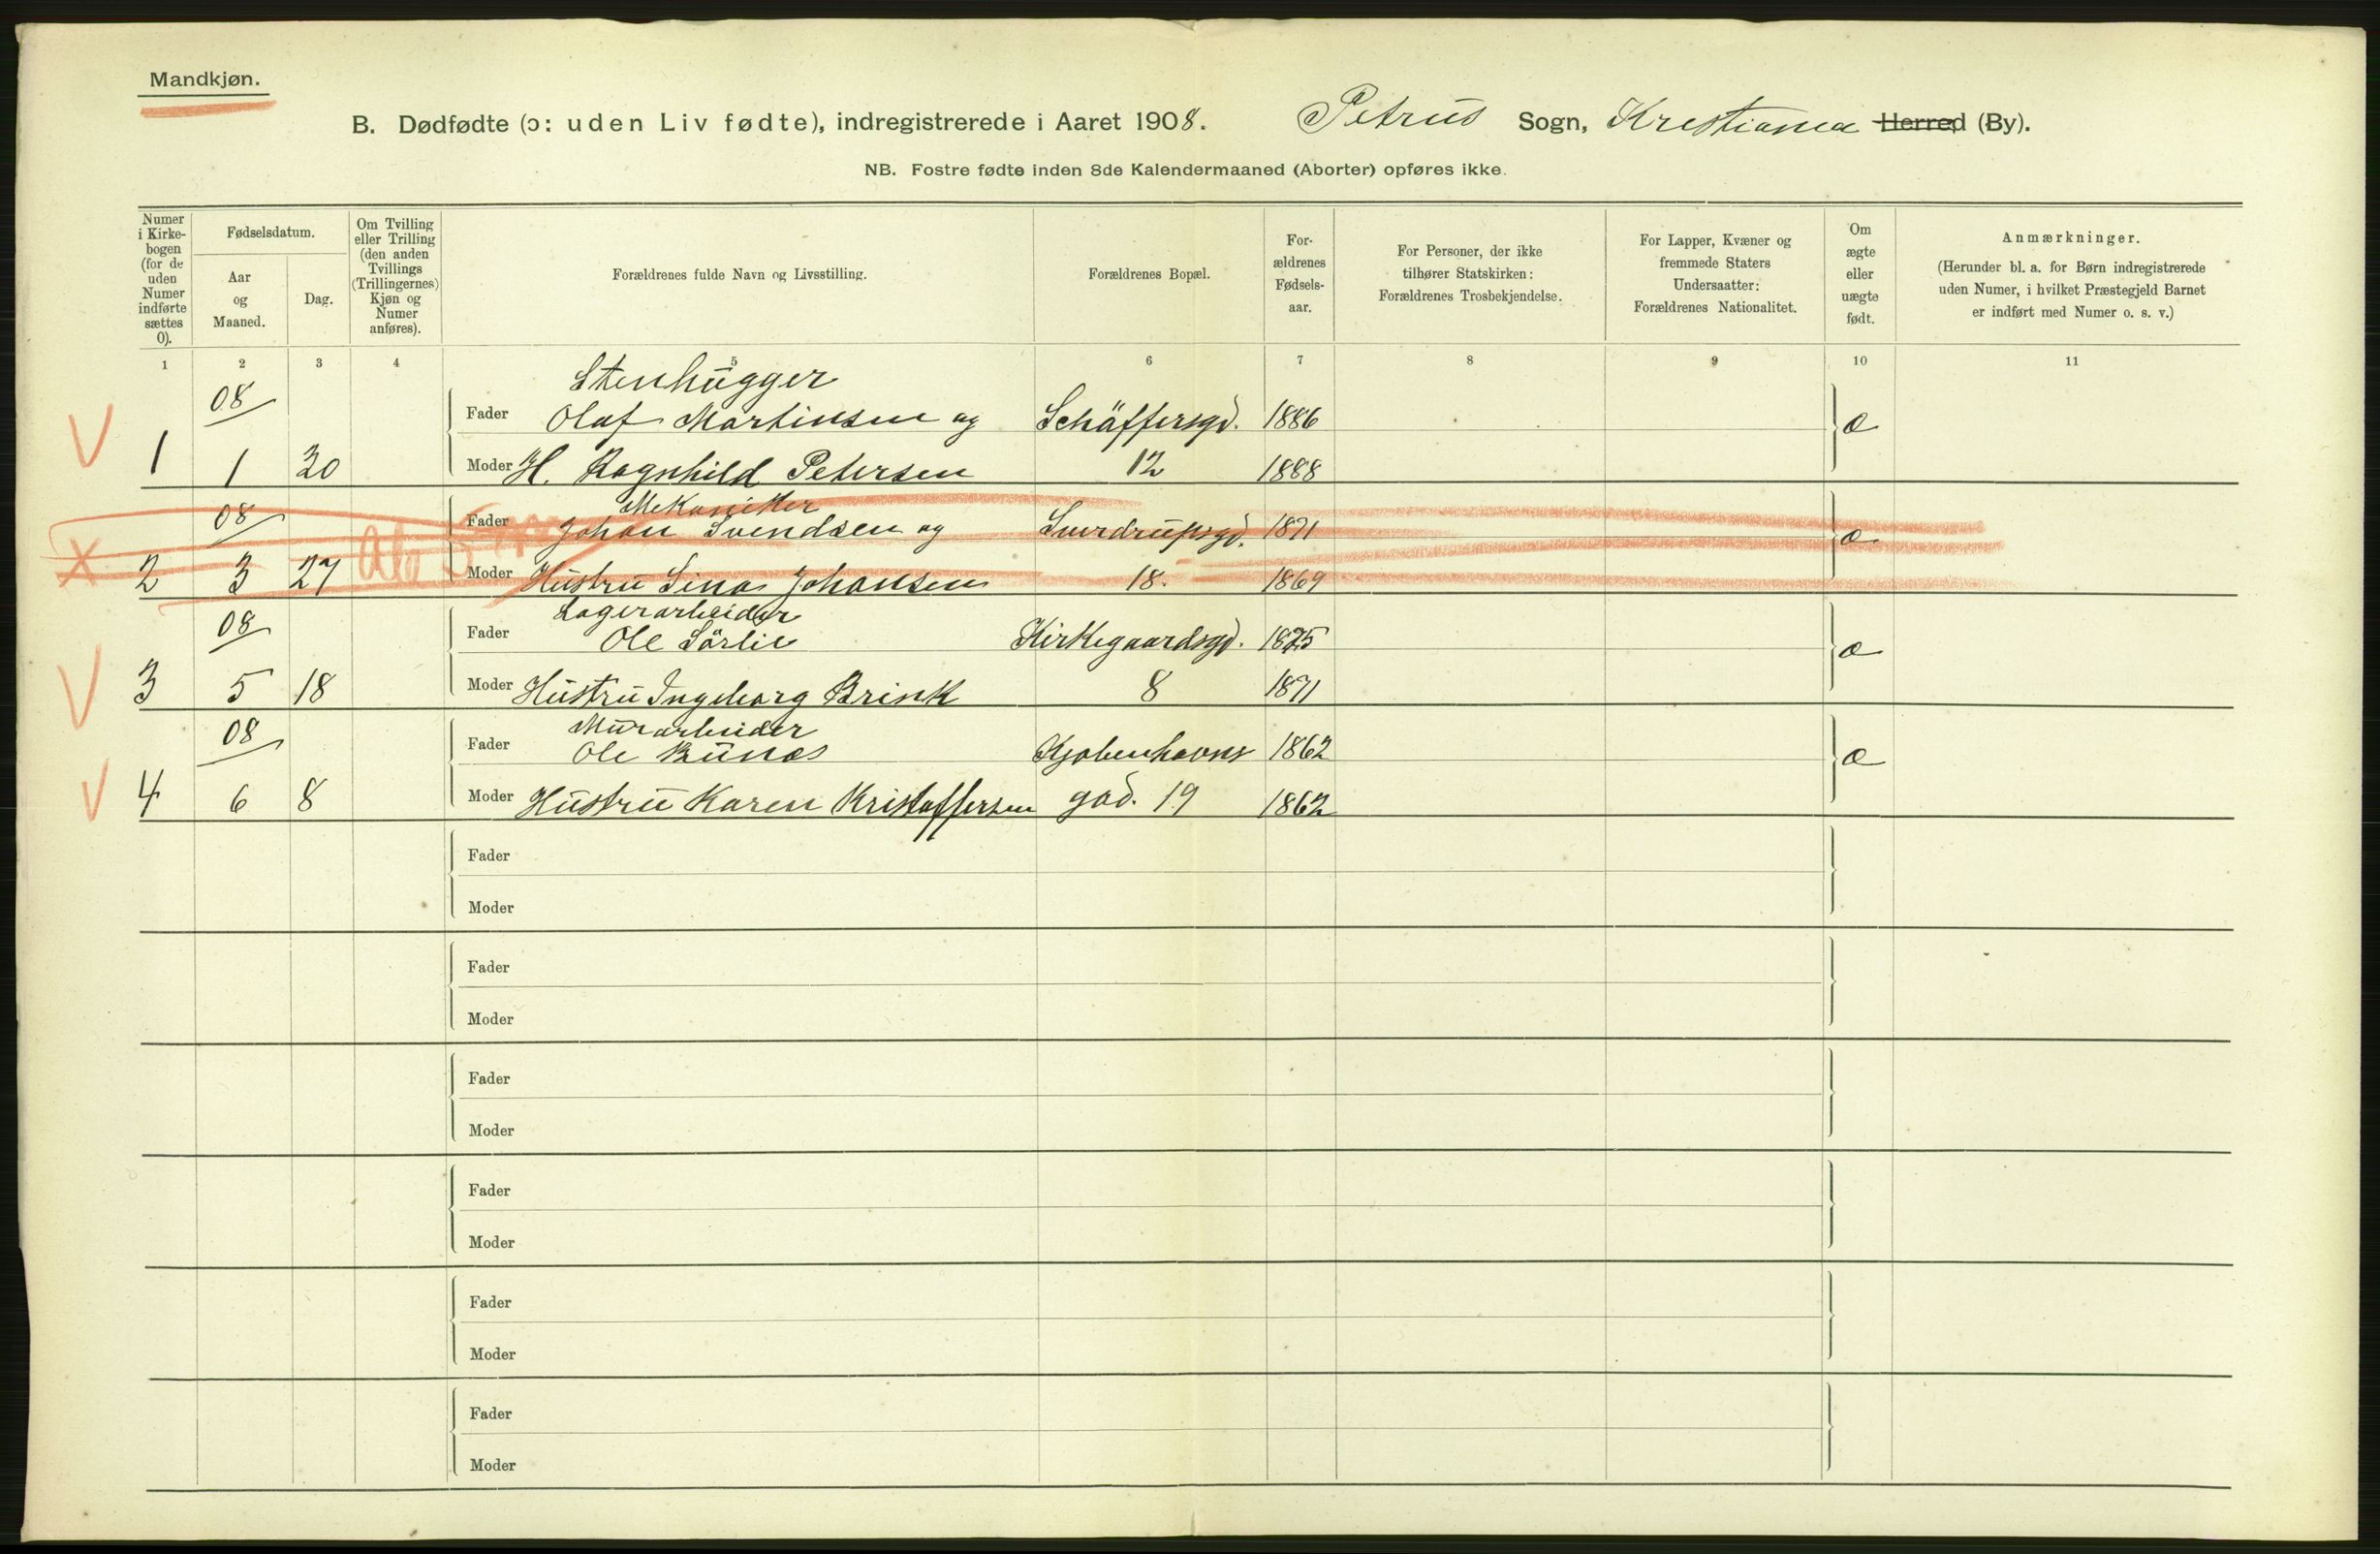 Mandkjøn.
B. Dødfødte (ɔ: uden Liv fødte), indregistrerede i Aaret 1908. Petrus Sogn, Kristiania Herred (By).
NB. Fostre fødte inden 8de Kalendermaaned (Aborter) opføres ikke.
Numer i Kirke-bogen (for de uden Numer indførte sættes 0).
Fødselsdatum.
Aar og Maaned.
Dag.
Om Tvilling eller Trilling (den anden Tvillings (Trillingernes) Kjøn og Numer anføres).
Forældrenes fulde Navn og Livsstilling.
Forældrenes Bopæl.
For-ældrenes Fødsels-aar.
For Personer, der ikke tilhører Statskirken: Forældrenes Trosbekjendelse.
For Lapper, Kvæner og fremmede Staters Undersaatter: Forældrenes Nationalitet.
Om ægte eller uægte født.
Anmærkninger.
(Herunder bl. a. for Børn indregistrerede uden Numer, i hvilket Præstegjeld Barnet er indført med Numer o. s. v.)
1 2 3 4 5 6 7 8 9 10 11
Stenhugger
08 Fader Olaf Martinsen og Schäffersgd. 1886 æ
V 1 1 30 Moder H. Ragnhild Petersen 12 1888
Mekaniker
08 Fader Johan Svendsen og Sverdrupsgd. 1871 æ
X 2 3 27 Moder Hustru Lina Johansen 18. 1869
Lagerarbeider
08 Fader Ole Sörlie Kirkegaardsgd. 1875 æ
V 3 5 18 Moder Hustru Ingeborg Brink 8 1871
Murarbeider
08 Fader Ole Bunæs Kjøbenhavns 1862 æ
V 4 6 8 Moder Hustru Karen Kristoffersen gad. 19 1862
Fader
Moder
Fader
Moder
Fader
Moder
Fader
Moder
Fader
Moder
Fader
Moder